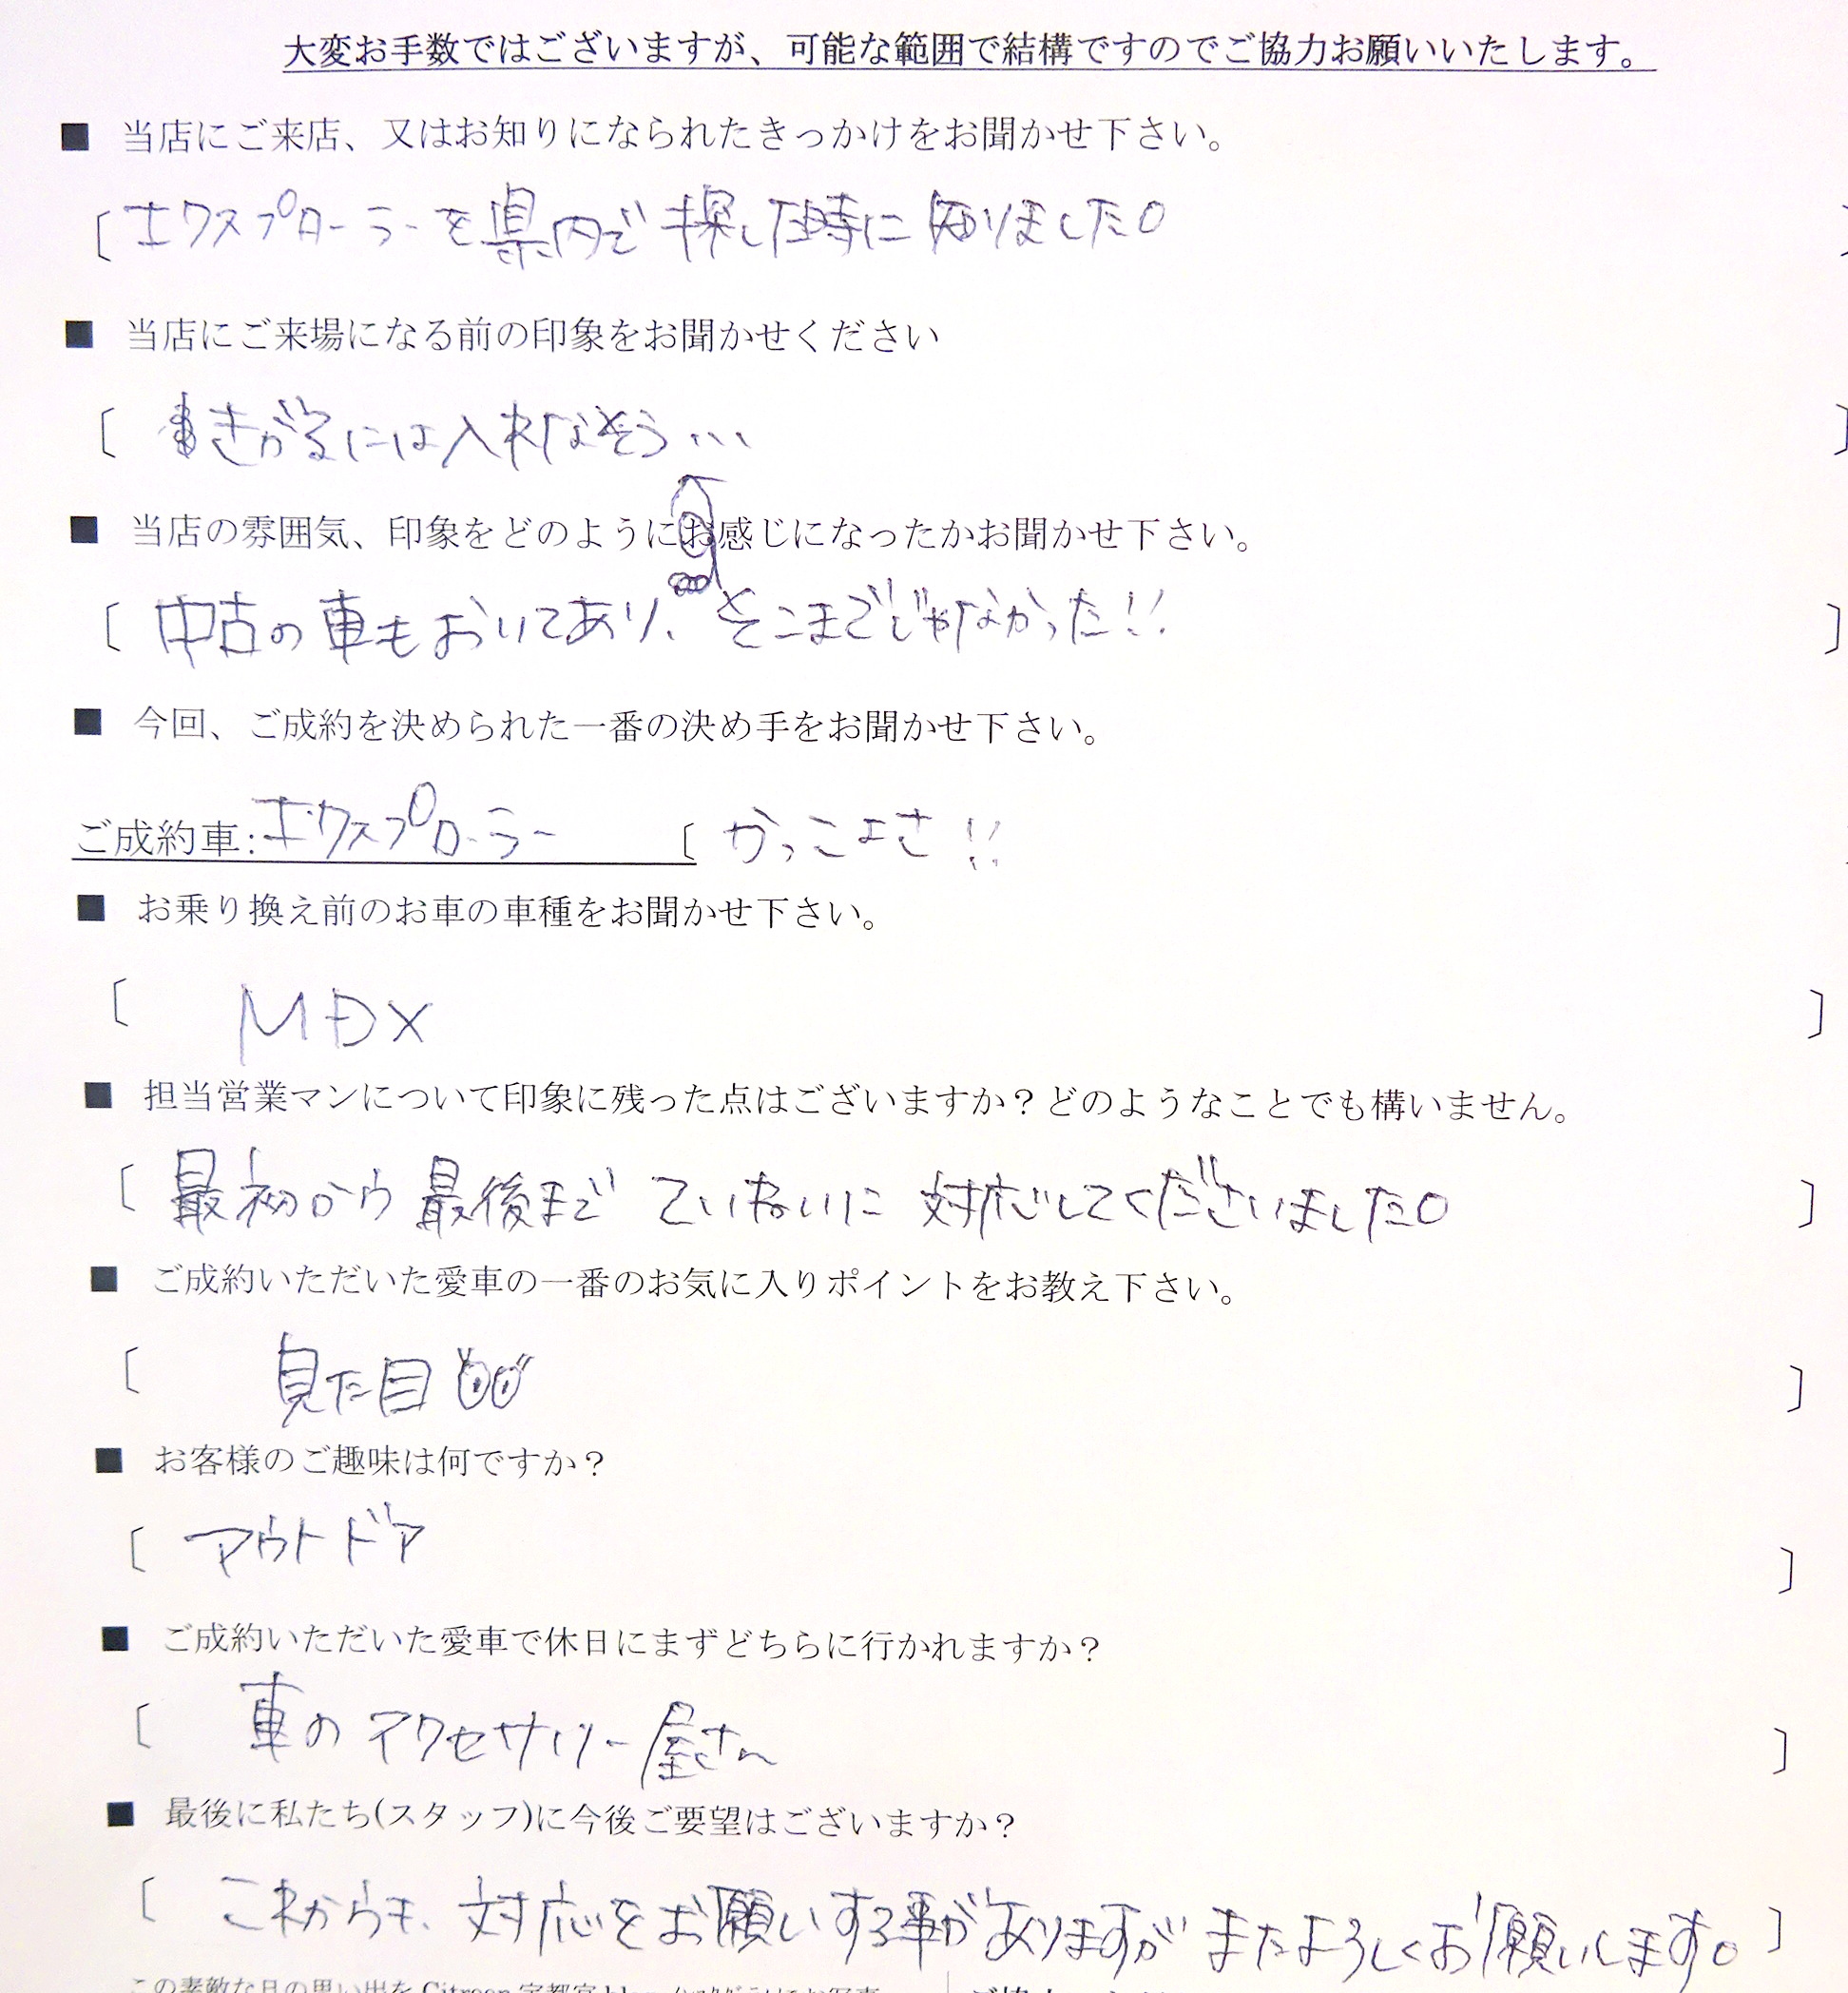 大変お手数ではございますが、可能な範囲で結構ですのでご協力お願いいたします。
■ 当店にご来店、又はお知りになられたきっかけをお聞かせ下さい。
〔エクスプローラーを県内で探した時に知りました。〕
■ 当店にご来場になる前の印象をお聞かせください
〔きがるには入れなそう…〕
■ 当店の雰囲気、印象をどのようにお感じになったかお聞かせ下さい。
〔中古の車もおいてあり、そこまでじゃなかった!!〕
■ 今回、ご成約を決められた一番の決め手をお聞かせ下さい。
ご成約車:エクスプローラー 〔かっこよさ!!
■ お乗り換え前のお車の車種をお聞かせ下さい。
〔MDX〕
■ 担当営業マンについて印象に残った点はございますか？どのようなことでも構いません。
〔最初から最後まで ていねいに 対応してくださいました。〕
■ ご成約いただいた愛車の一番のお気に入りポイントをお教え下さい。
〔見た目〕
■ お客様のご趣味は何ですか？
〔アウトドア〕
■ ご成約いただいた愛車で休日にまずどちらに行かれますか？
〔車のアクセサリー屋さん〕
■ 最後に私たち(スタッフ)に今後ご要望はございますか？
〔これからも、対応をお願いする事がありますが またよろしくお願いします。〕
この素敵な日の思い出を Citroen 宇都宮 blog